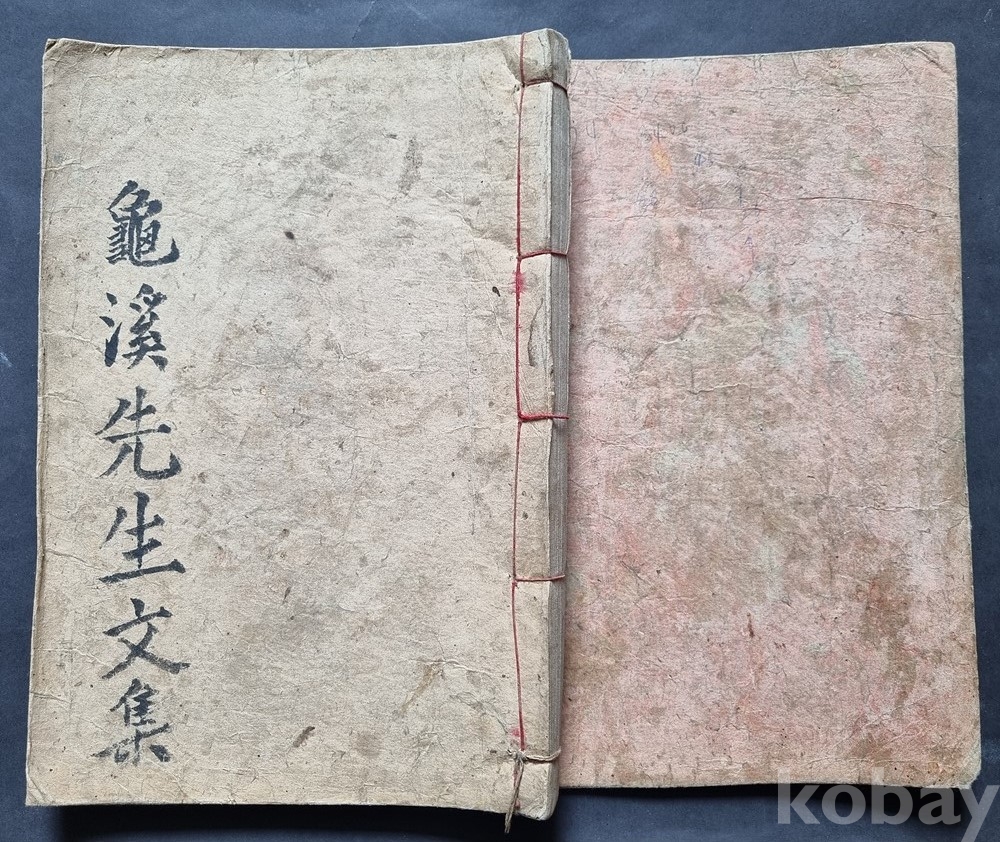 龜溪先生文集
kobay